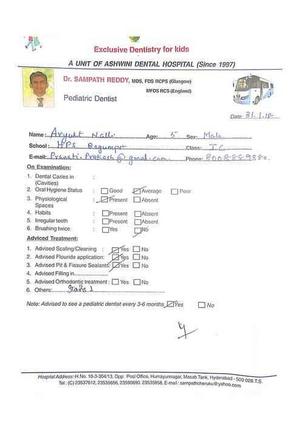 Exclusive Dentistry for kids
A UNIT OF ASHWINI DENTAL HOSPITAL (Since 1997)
Dr. SAMPATH REDDY, MDS, FDS RCPS (Glasgow)
MFDS RCS (England)
Pediatric Dentist
Date: 31.1.18
Name: Age: 5 Sex: Male
School: HPS Begumpet Class: I C
E-mail: Phone:
On Examination:
1. Dental Caries in :
(Cavities)
2. Oral Hygiene Status : Good Average Poor
3. Physiological : Present Absent
Spaces
4. Habits : Present Absent
5. Irregular teeth : Present Absent
6. Brushing twice : Yes No
Adviced Treatment:
1. Advised Scaling/Cleaning : Yes No
2. Advised Flouride application: Yes No
3. Advised Pit & Fissure Sealants: Yes No
4. Advised Filling in
5. Advised Orthodontic treatment : Yes No
6. Others:
Note: Advised to see a pediatric dentist every 3-6 months Yes No
Hospital Address: H.No. 10-3-304/13, Opp: Post Office, Humayunnagar, Masab Tank, Hyderabad - 500 028. T.S.
Tel: (C) 23537612, 23535656, 23590693, 23535958. E-mail : sampathcheruku@yahoo.com